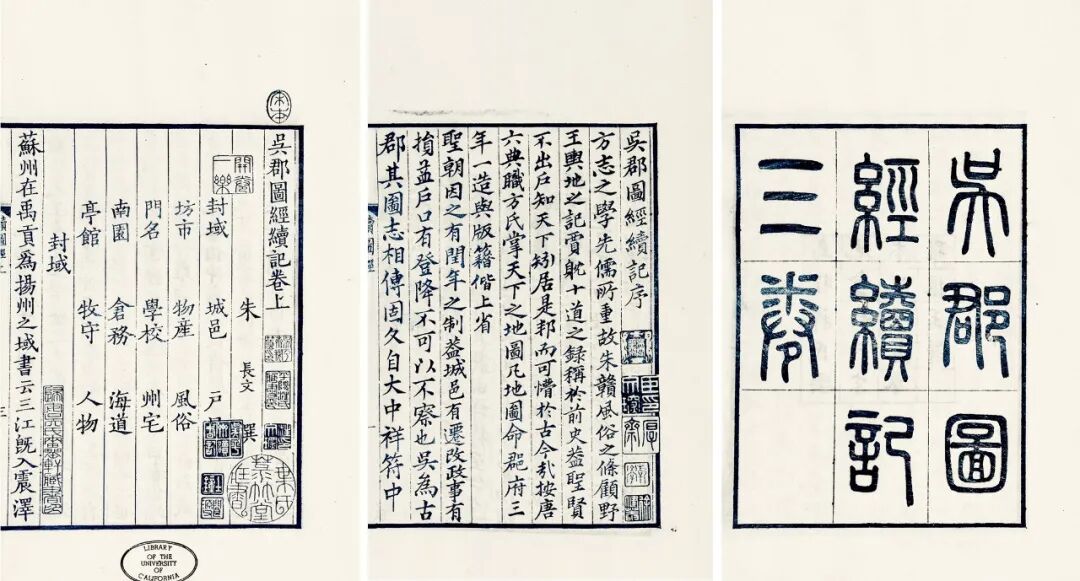 吳郡圖
經續記
三卷
吳郡圖經續記序
方志之學先儒所重故朱贛風俗之條顧野
王輿地之記賈躭十道之錄稱於前史蓋聖賢
不出戶知天下矧居是邦而可懵於古今哉按唐
六典職方氏掌天下之地圖凡地圖命郡府三
年一造與版籍偕上省
聖朝因之有閏年之制蓋城邑有遷改政事有
損益戶口有登降不可以不察也吳為古
郡其圖志相傳固久自大中祥符中
續圖經
宋本
吳郡圖經續記卷上
開卷一樂
朱 長文 撰
封域 城邑 戶
坊市 物產 風俗
門名 學校 州宅
南園 倉務 海道
亭館 牧守 人物
封域
蘇州在禹貢為揚州之域書云三江既入震澤
續圖經上
三
LIBRARY
OF THE
UNIVERSITY
OF
CALIFORNIA